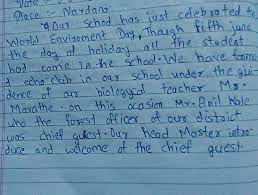 Date -
Place - Nardana
Our school has just celebrated
World Enviroment Day, Though fifth june
the day of holiday all the student
had come in the school. We have
echo club in our school under the gui-
dence of our biologycal teacher Mr.
Marathe. on this ocasion Mr. Anil Kale
who the forest officer of our district
was chief guest. Our head Master intro-
duse and welcome of the chief guest.